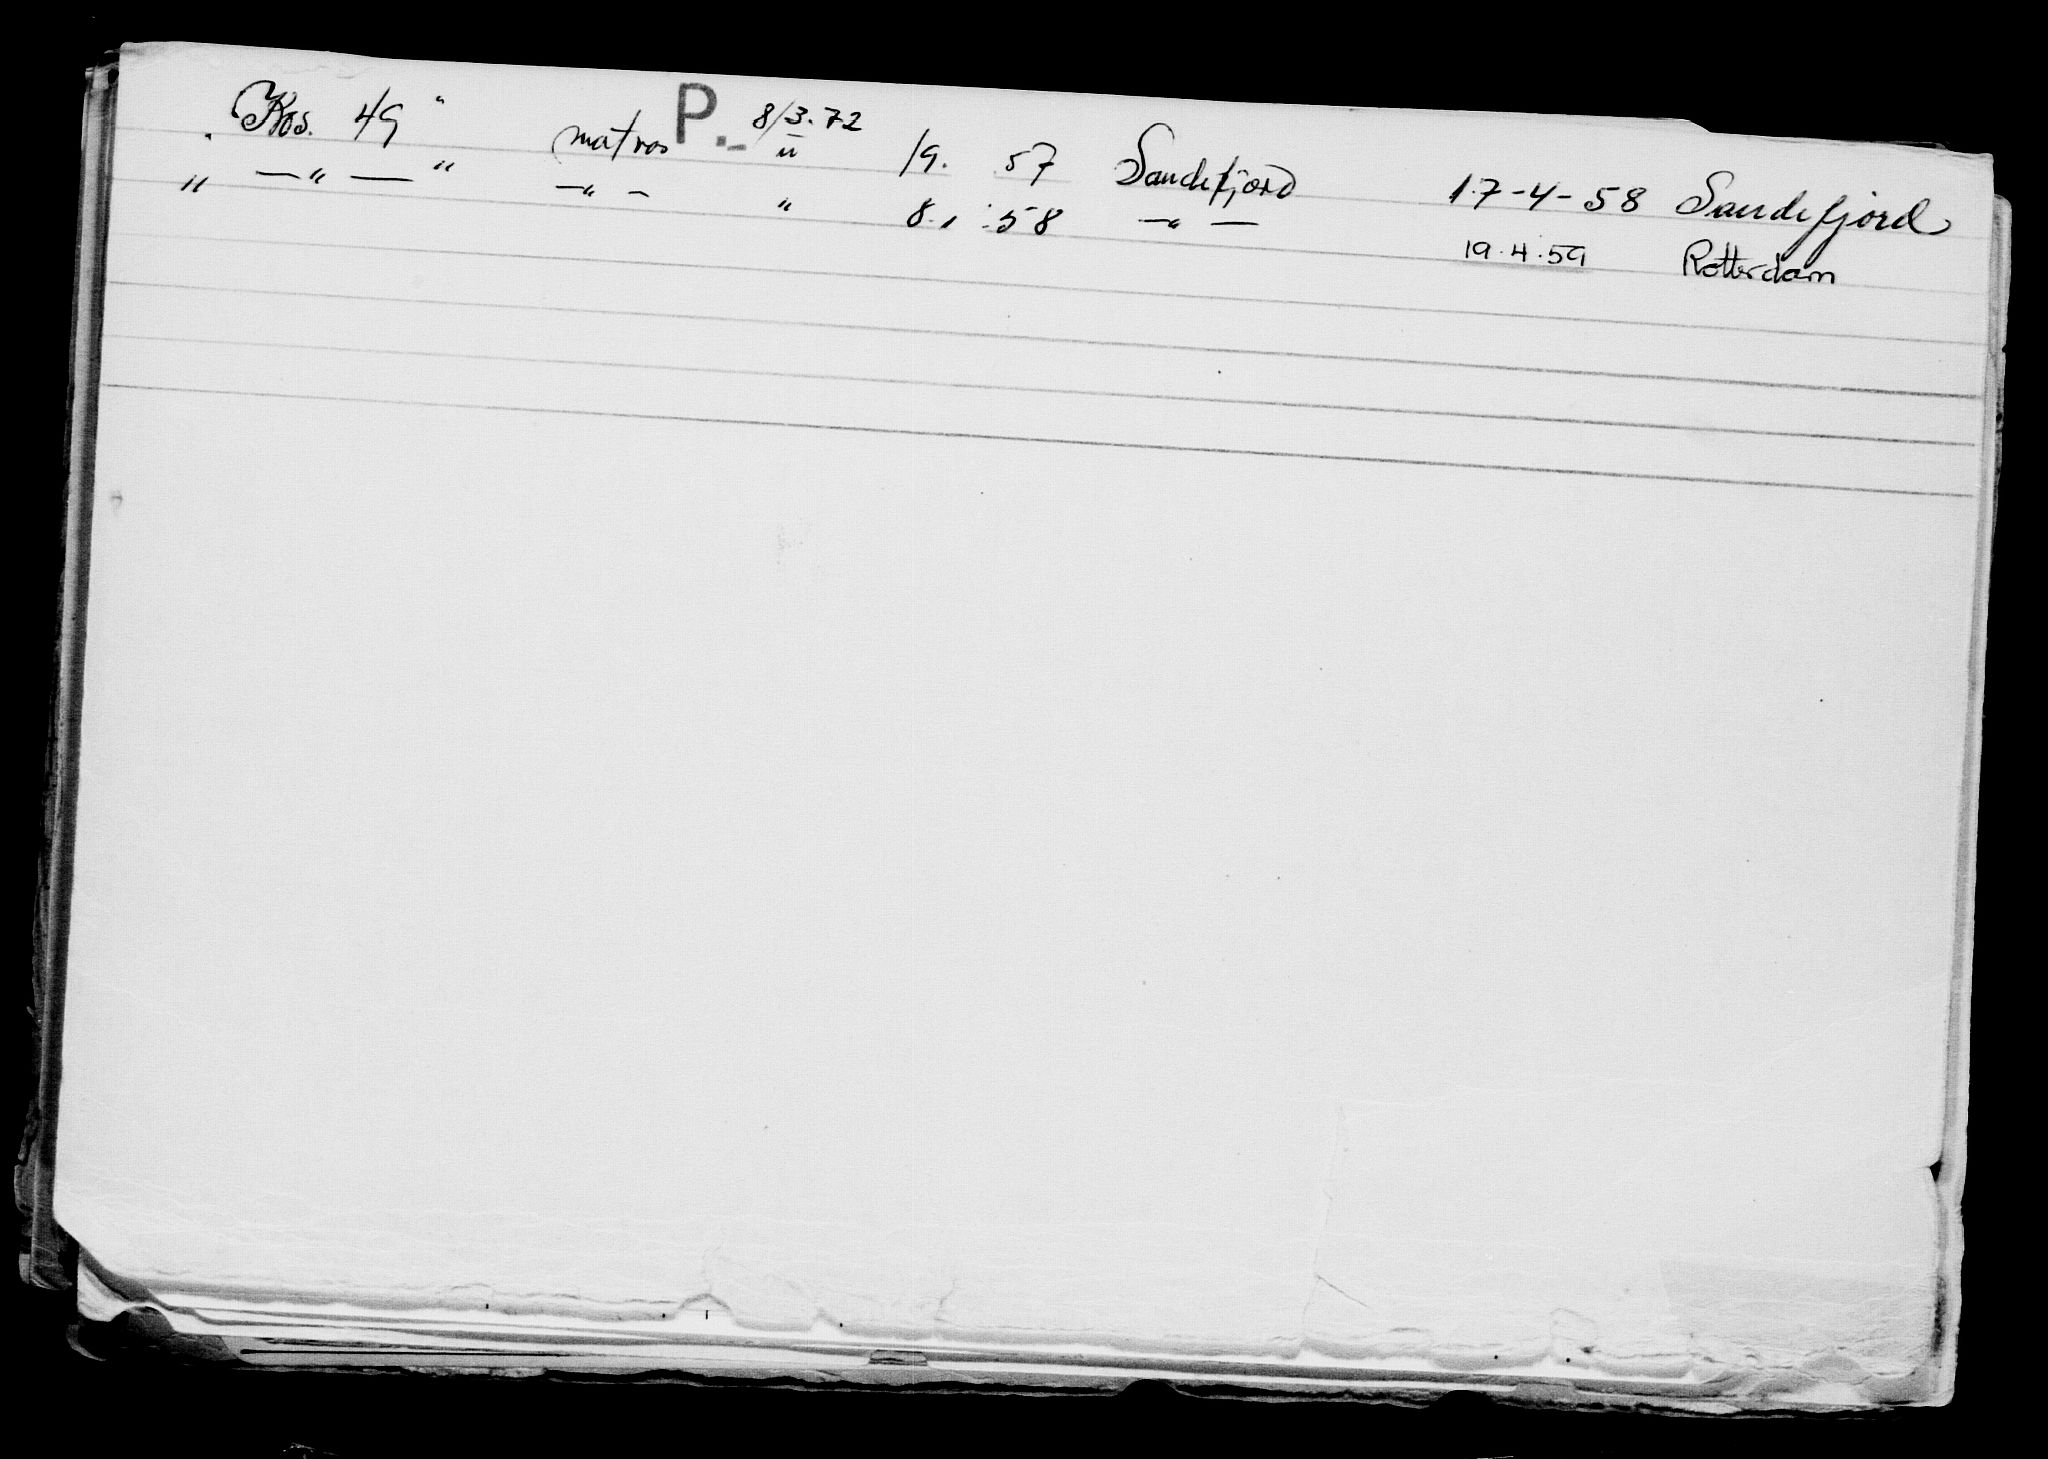 P. 8/3.72
" Kos. 49 " matros " 19. 57 Sandefjord 17-4-58 Sandefjord
" —"— " —"— " 8. 58 —"— 19.4.59 Rotterdam